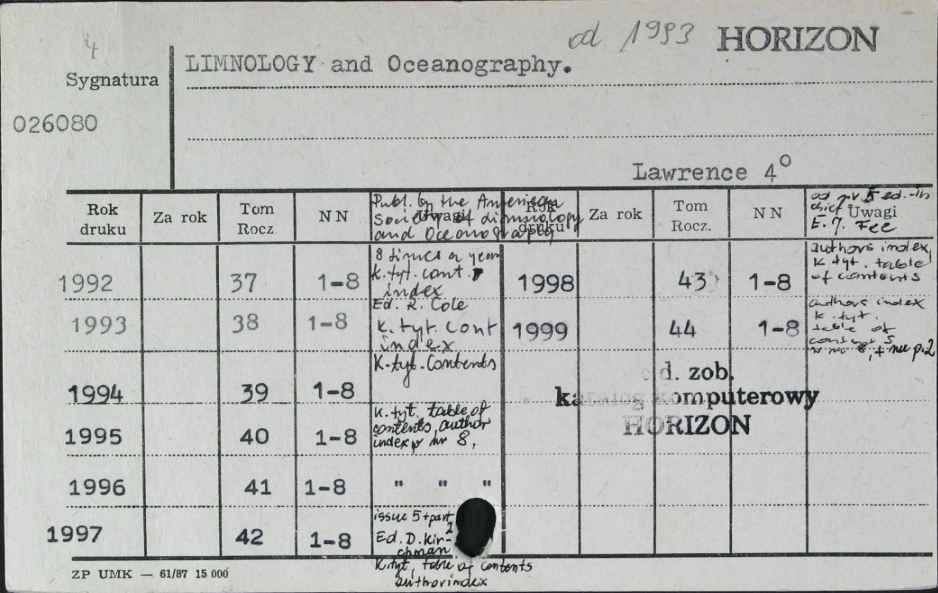 4
od 1993 HORIZON
Sygnatura
LIMNOLOGY and Oceanography.
026080
Lawrence 4°
Rok druku
Za rok
Tom Rocz
N N
Uwagi
Publ. by the American
Society of Limnology
and Oceanography
Rok druku
Za rok
Tom Rocz.
N N
Uwagi
ed.-in
chief
E. J. Fee
1992 37 1-8
8 times a year
k.tyt. cont.
index
Ed. R. Cole
1998 43 1-8
authors index,
k. tyt. table
of contents
1993 38 1-8
k. tyt. cont
index
1999 44 1-8
authors index
k. tyt.
table of
contents
w nr 8, + nr p.2
1994 39 1-8
k.tyt. Contents
d. zob.
katalog komputerowy
HORIZON
1995 40 1-8
k. tyt. table of
contents, author
index w nr 8,
1996 41 1-8 " " "
1997 42 1-8
issue 5+part
2
Ed. D. Kir-
chman
k.tyt, table of contents
author index
ZP UMK — 61/87 15 000